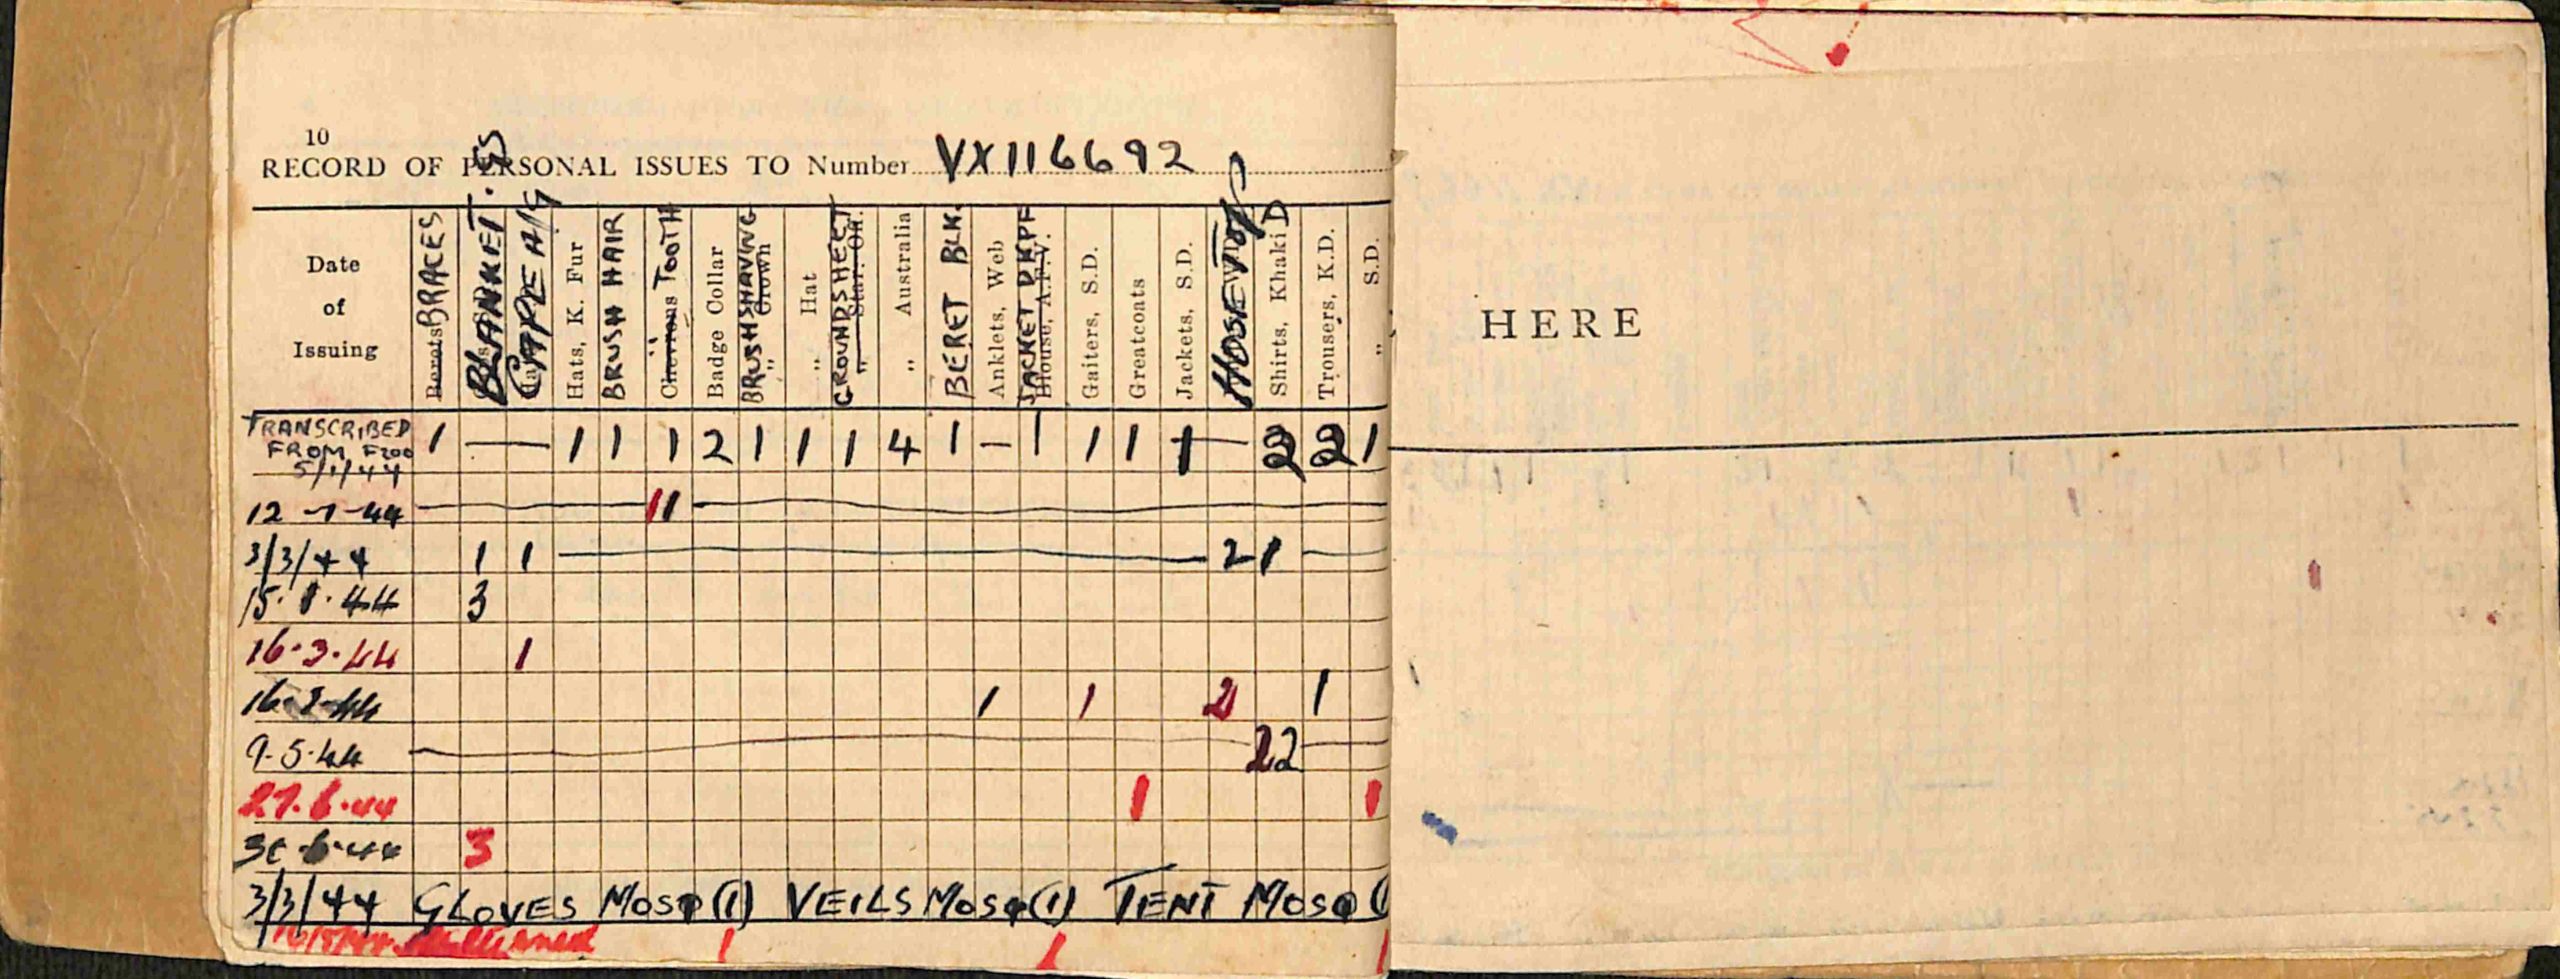 10
RECORD OF PERSONAL ISSUES TO Number VX116692
Date of Issuing
Berets BRACES
BLANKET. GS
CAPE A/G
Hats, K. Fur
BRUSH HAIR
Chevrons " TOOTH
Badge Collar
" Crown BRUSH SHAVING
" Hat
" Star. Off. GROUNDSHEET
" Australia
BERET BLK.
Anklets, Web
Blouse, A.F.V. JACKET DKPF
Gaiters, S.D.
Greatcoats
Jackets, S.D.
HOSE TOP
Shirts, Khaki D
Trousers, K.D.
" S.D.
HERE
TRANSCRIBED FROM F200 5/1/44 1 — 1 1 1 2 1 1 1 4 1 – 1 1 1 1 — 2 2 1
12-1-44 1 1
3/3/44 1 1 2 1
15.1.44 3
16.3.44 1
16-3-44 1 1 2 1
9.5.44 2 2
27.6.44 1 1
30.6.44 3
3/3/44 GLOVES MOSQ (1) VEILS MOSQ (1) TENT MOSQ (1
1 1 1